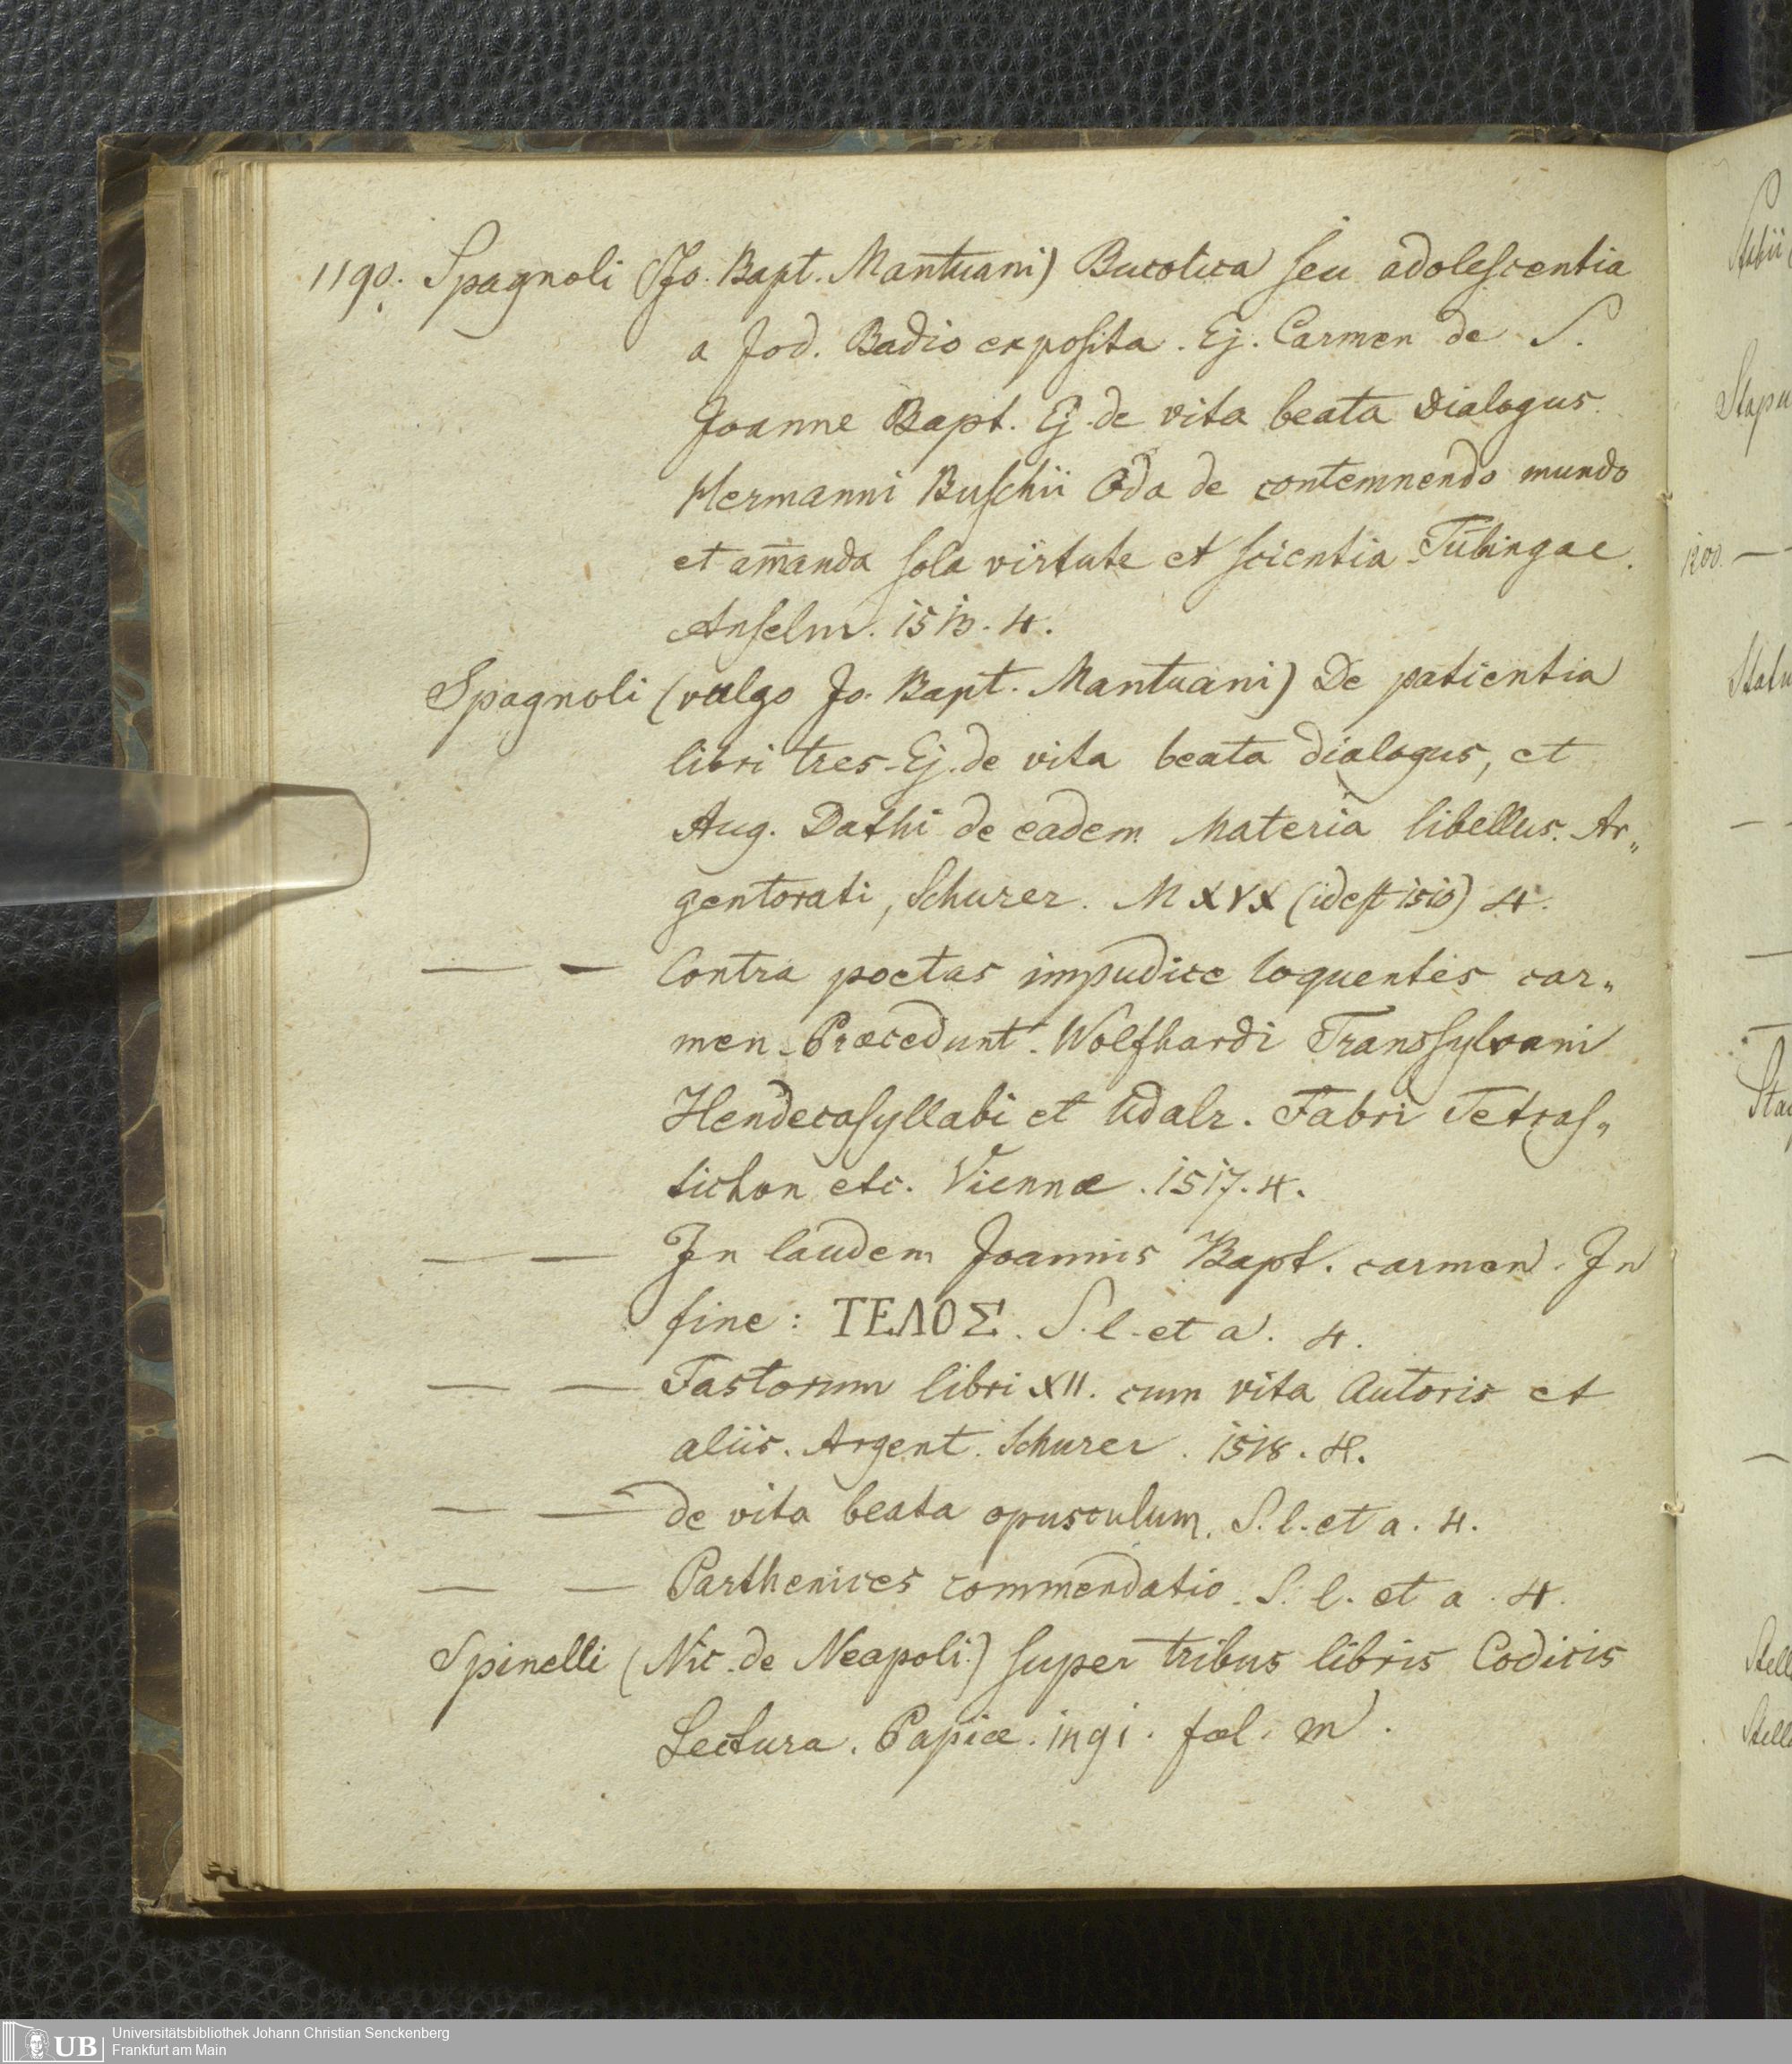 1190. Spagnoli (Jo. Bapt. Mantuani) Bucolica seu adolescentia
a Jod. Badio exposita. Ej. Carmen de S.
Joanne Bapt. Ej. de vita beata Dialogus.
Hermanni Buschii Oda de contemnendo mundo
et amanda sola virtute et scientia. Tubingae.
Anselm. 1513. 4.
Spagnoli (vulgo Jo. Bapt. Mantuani) De patientia
libri tres. Ej. de vita beata dialogus, et
Aug. Dathi de eadem Materia libellus. Ar„
gentorati, Schurer. MXVX (idest 1510) 4.
— — Contra poetas impudice loquentes car„
men. Praecedunt. Wolfhardi Transsylvani
Hendecasyllabi et Udalr. Fabri Tetras„
tichon etc. Viennæ. 1517. 4.
— — In laudem Joannis Bapt. carmen. In
fine: ΤΕΛΟΣ. S. l. et a. 4.
— — Fastorum libri XII. cum vita Autoris et
aliis. Argent. Schurer. 1518. 4.
— — de vita beata opusculum. S. l. et a. 4.
— — Parthenices commendatio. S. l. et a. 4.
Spinelli (Nic. de Neapoli.) super tribus libris Codicis
Lectura. Papiæ. 1491. fol. m.
1200. —
UB
Universitätsbibliothek Johann Christian Senckenberg
Frankfurt am Main